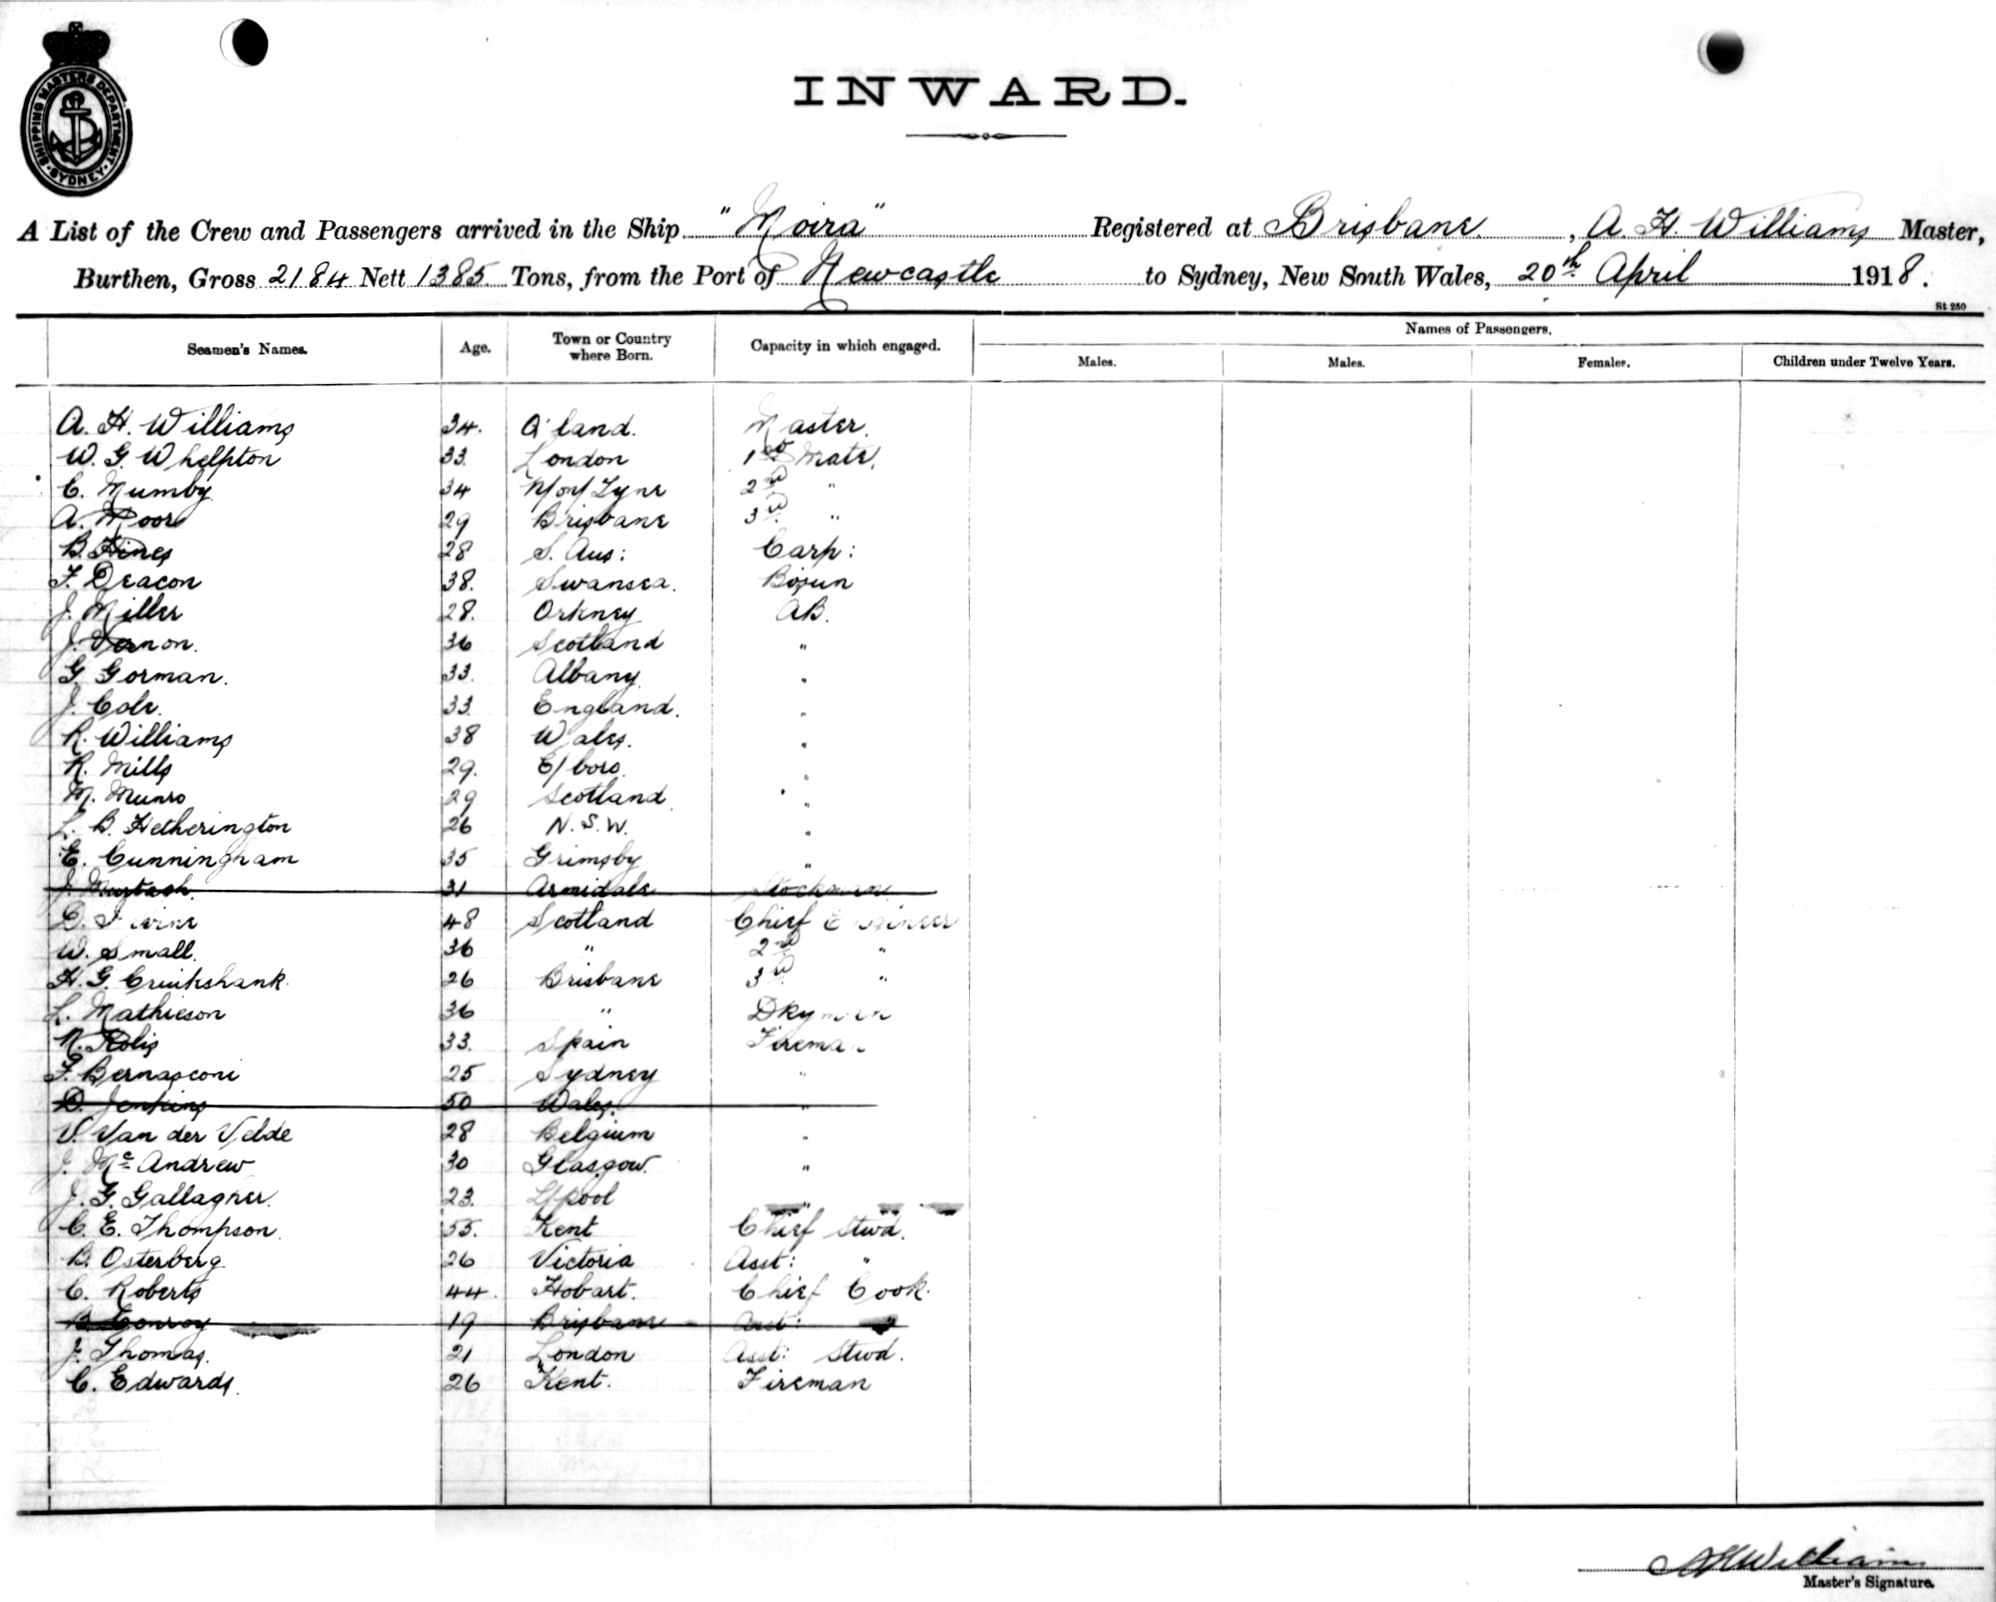 SHIPPING MASTERS DEPARTMENT
SYDNEY
INWARD.
A List of the Crew and Passengers arrived in the Ship "Moira" Registered at Brisbane, A. H. Williams Master,
Burthen, Gross 2184 Nett 1385 Tons, from the Port of Newcastle to Sydney, New South Wales, 20th April 1918.
St 250
Names of Passengers.
Seamen's Names. Age. Town or Country where Born. Capacity in which engaged. Males. Males. Females. Children under Twelve Years.
A. H. Williams 34. Q'land. Master.
W. G. Whelpton 33. London 1st Mate.
C. Mumby 34 N/on/Tyne 2nd "
A. Moore 29 Brisbane 3rd "
B. Hines 28 S. Aus: Carp:
F. Deacon 38. Swansea. Bosun
J. Miller 28. Orkney AB.
J. Vernon. 36 Scotland "
G. Gorman. 33. Albany "
J. Cole. 33. England. "
R. Williams 38 Wales. "
R. Mills 29. E/boro. "
M. Munro 29 Scotland. "
L. B. Hetherington 26 N.S.W. "
E. Cunningham 35 Grimsby "
J. 31 Armidale Stockman
D. 48 Scotland Chief Engineer
W. Small. 36 " 2nd "
H. G. Cruikshank. 26 Brisbane 3rd "
L. Mathieson 36 " Dkyman
33. Spain Fireman
F. Bernasconi 25 Sydney "
D. Jenkins 50 Wales. "
V. Van der Velde 28 Belgium "
J. McAndrew 30 Glasgow. "
J. G. Gallagher. 23. L/pool "
C. E. Thompson. 55. Kent Chief Stwd.
B. Osterberg 26 Victoria Asst: "
C. Roberts 44. Hobart. Chief Cook.
B. Conroy 19 Brisbane Asst: "
J. Thomas. 21 London Asst: Stwd.
C. Edwards. 26 Kent. Fireman
A H Williams
Master's Signature.